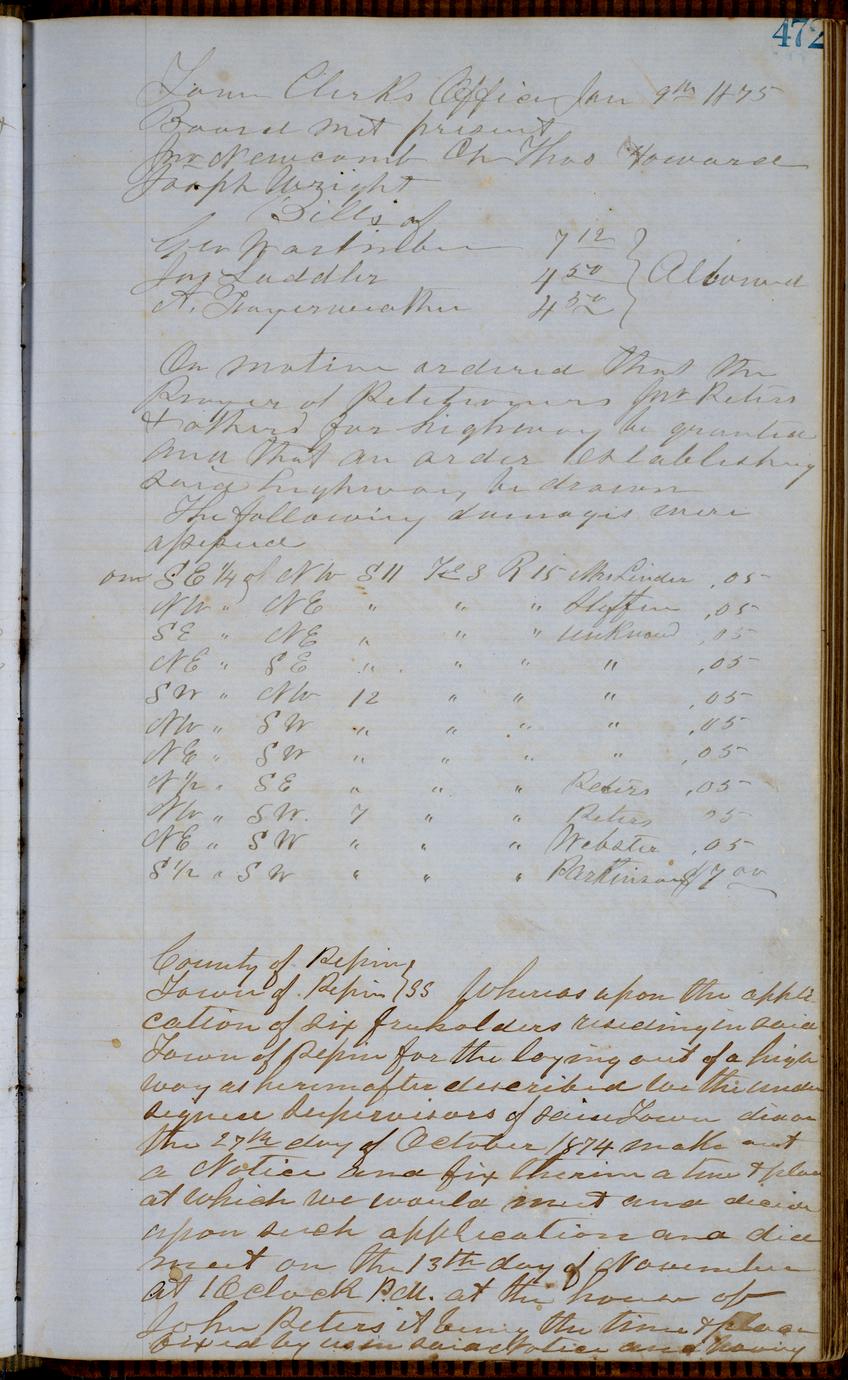 472
Town Clerks Office Jan 9th 1875
Board met present
Jno Newcomb Ch Thos Howard
Joseph Wright
Bills of
Geo 7 12
Jas Saddler 4 50 } Allowed
A. Fayerweather 4 50
On motion ordered that the
Prayer of Petitioners Jno Peters
& others for highway be granted
and that an order establishing
said highway be drawn
The following damages were
assessed
on SE 1/4 of NW S 11 T 23 R 15 Mrs Linder .05
NW " NE " " " .05
SE " NE " " " unknown .05
NE " SE " " " " .05
SW " NW 12 " " " .05
NW " SW " " " " .05
NE " SW " " " " .05
N 1/2 " SE " " " Peters .05
NW " SW. 7 " " Peters 05
NE " SW " " " Webster .05
S 1/2 " SW " " " Parkinson $7 00
County of Pepin }
Town of Pepin } SS Whereas upon the appli
cation of six freeholders residing in said
Town of Pepin for the laying out of a high
way as hereinafter described we the under
signed Supervisors of said Town did on
the 27th day of October 1874 make out
a Notice and fix therin a time & place
at which we would meet and decide
upon such application and did
meet on the 13th day of November
at 1 Oclock P.M. at the house of
John Peters it being the time & place
fixed by us in said Notice and having